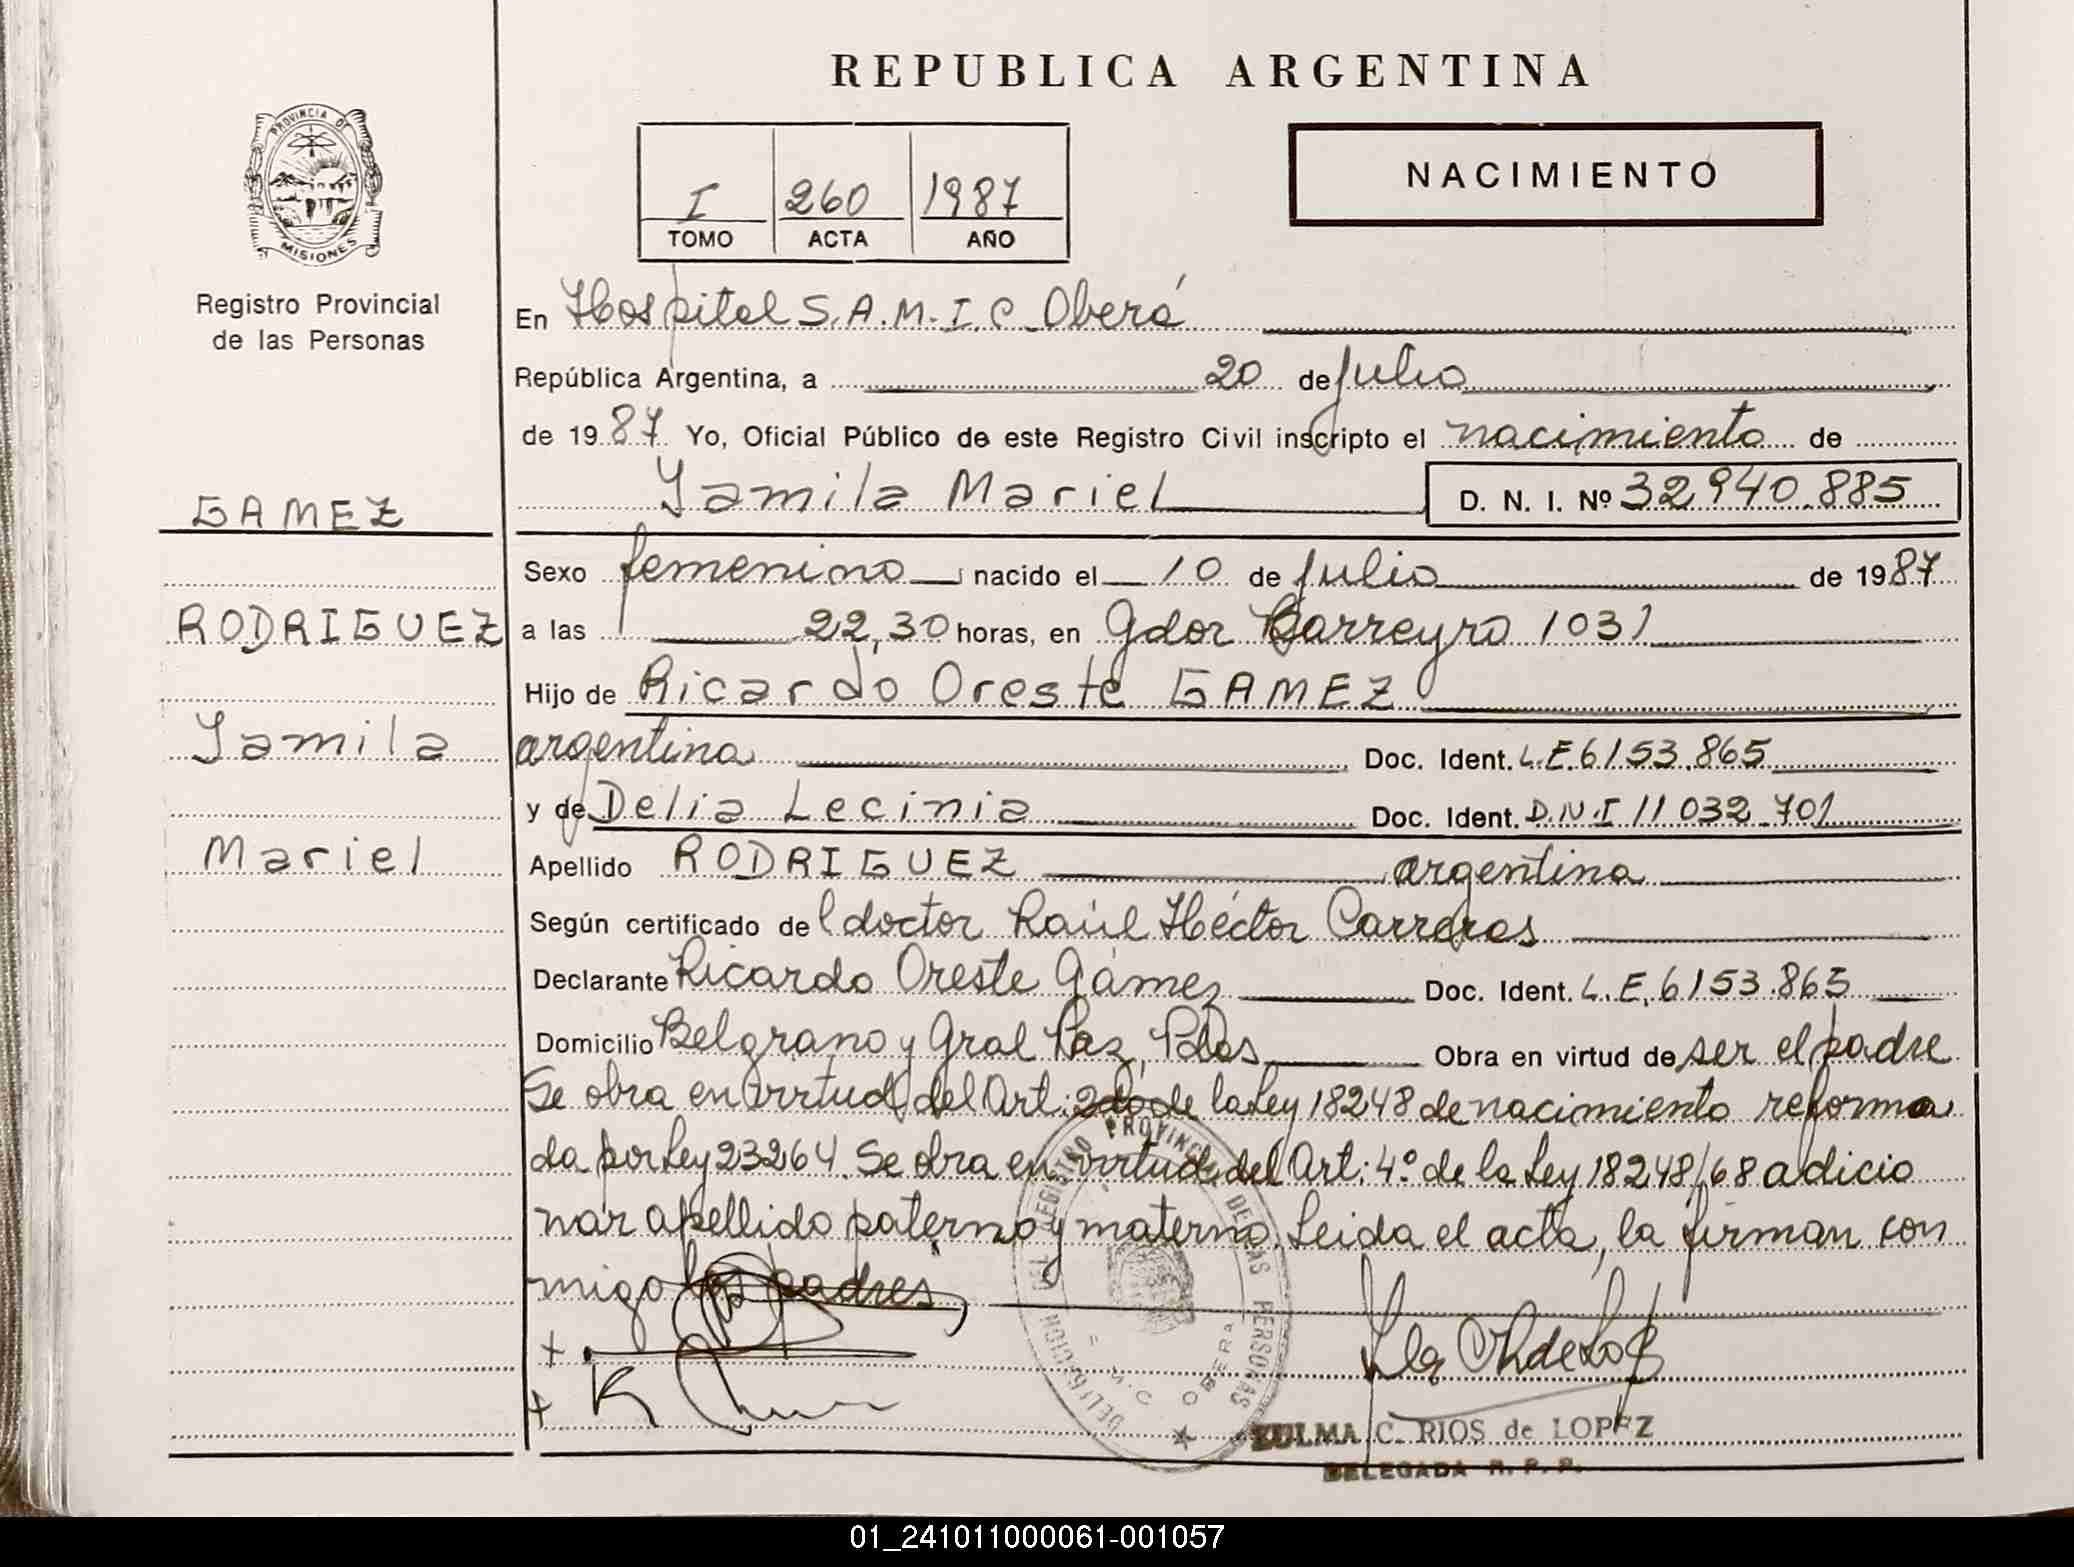 REPUBLICA ARGENTINA
PROVINCIA DE
MISIONES
Registro Provincial
de las Personas
I 260 1987
TOMO ACTA AÑO
NACIMIENTO
GAMEZ
RODRIGUEZ
Yamila
Mariel
En Hospital S.A.M.I.C Oberá
República Argentina, a 20 de julio
de 1987 Yo, Oficial Público de este Registro Civil inscripto el nacimiento de
Yamila Mariel D. N. I. Nº 32.940.885
Sexo femenino nacido el 10 de julio de 1987
a las 22,30 horas, en Gdor Barreyro 1031
Hijo de Ricardo Oreste GAMEZ
argentina Doc. Ident. L.E. 6153.865
y de Delia Lecinia Doc. Ident. D.N.I 11 032.701
Apellido RODRIGUEZ argentina
Según certificado del doctor Raúl Héctor Carreras
Declarante Ricardo Oreste Gámez Doc. Ident. L.E. 6153.865
Domicilio Belgrano y Gral Paz, Pdas Obra en virtud de ser el padre
Se obra en virtud del Art: 2do de la Ley 18248 de nacimiento reforma
da por Ley 23264. Se obra en virtud del Art: 4º de la Ley 18248/68 adicio
nar apellido paterno y materno. Leida el acta, la firman con
migo los padres,
DELEGACION DEL REGISTRO PROVINCIAL DE LAS PERSONAS
OBERA
ZULMA C. RIOS de LOPEZ
DELEGADA R. P. P.
01_241011000061-001057